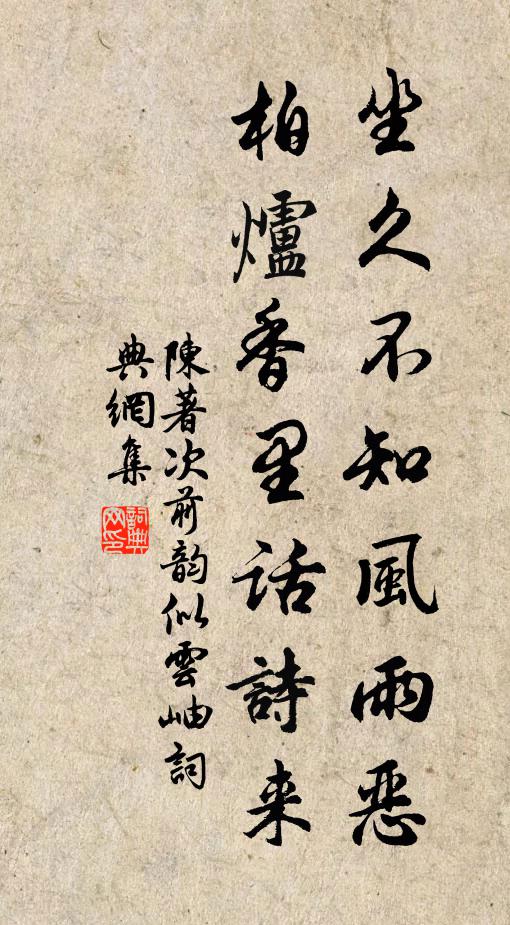 坐久不知風雨惡
柏爐香里話詩来
陳著次前韵似雲岫詞
典網集
詞典网印